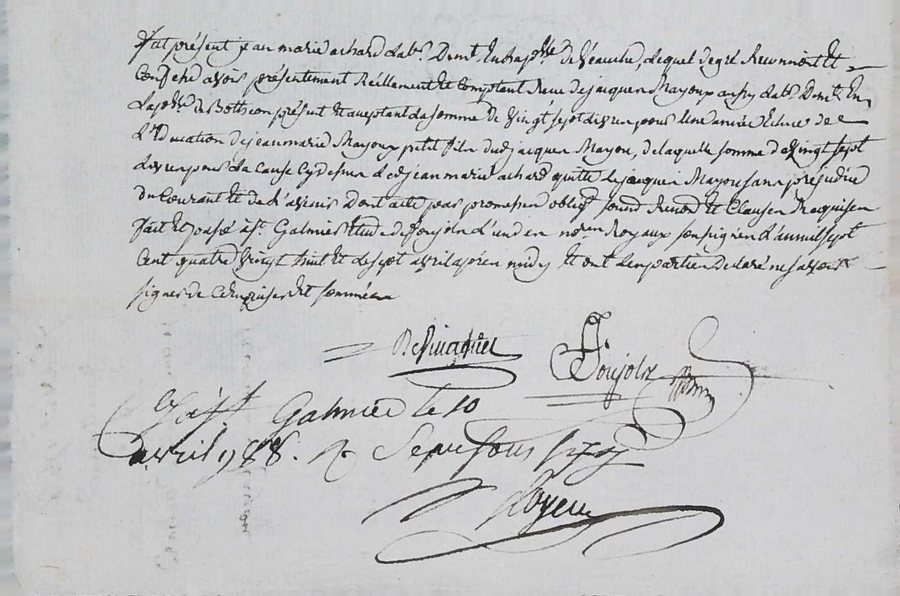 fut présent jean marie achard lab.r Dem.t En la p.sse de Veauche, lequel de gré Reconnoit Et
Confesse avoir présentement Réellement Et Comptant Reçu de jacques Mayoux aussy lab.r Dem.t En
la p.sse de Botheon présent Et aceptant la somme de Vingt sept livres pour Une année Echue de
L'Education de jean marie Mayoux petit fils dud jacques Mayoux, de laquelle somme de Vingt sept
livres pour la Cause Cy dessus led jean marie achard quitte le jacques Mayoux sans préjudice
du Courant Et de l'avenir dont acte par promesses oblig.t soum.d Renond Et Clauses Requises
fait Et passé a S.t Galmier Etude de Ponjolx l'un des no.res Royaux soussignés l'an mil sept
Cent quatre Vingt huit Et le sept avril après midy Et ont les parties Déclaré ne savoir
signer de Ce Enquises Et sommées
Ponjolx
C.lé à S.t Galmier le 10
avril 1788. R. Sept sous
Royer